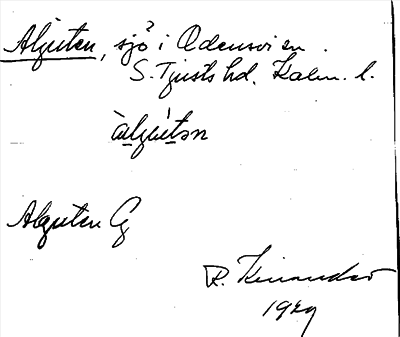 Algutan, sjö i Odensvi sn.
S. Tjusts hd. Kalm. l.
àlgùtən
Alguten G
R. Kinander
1929